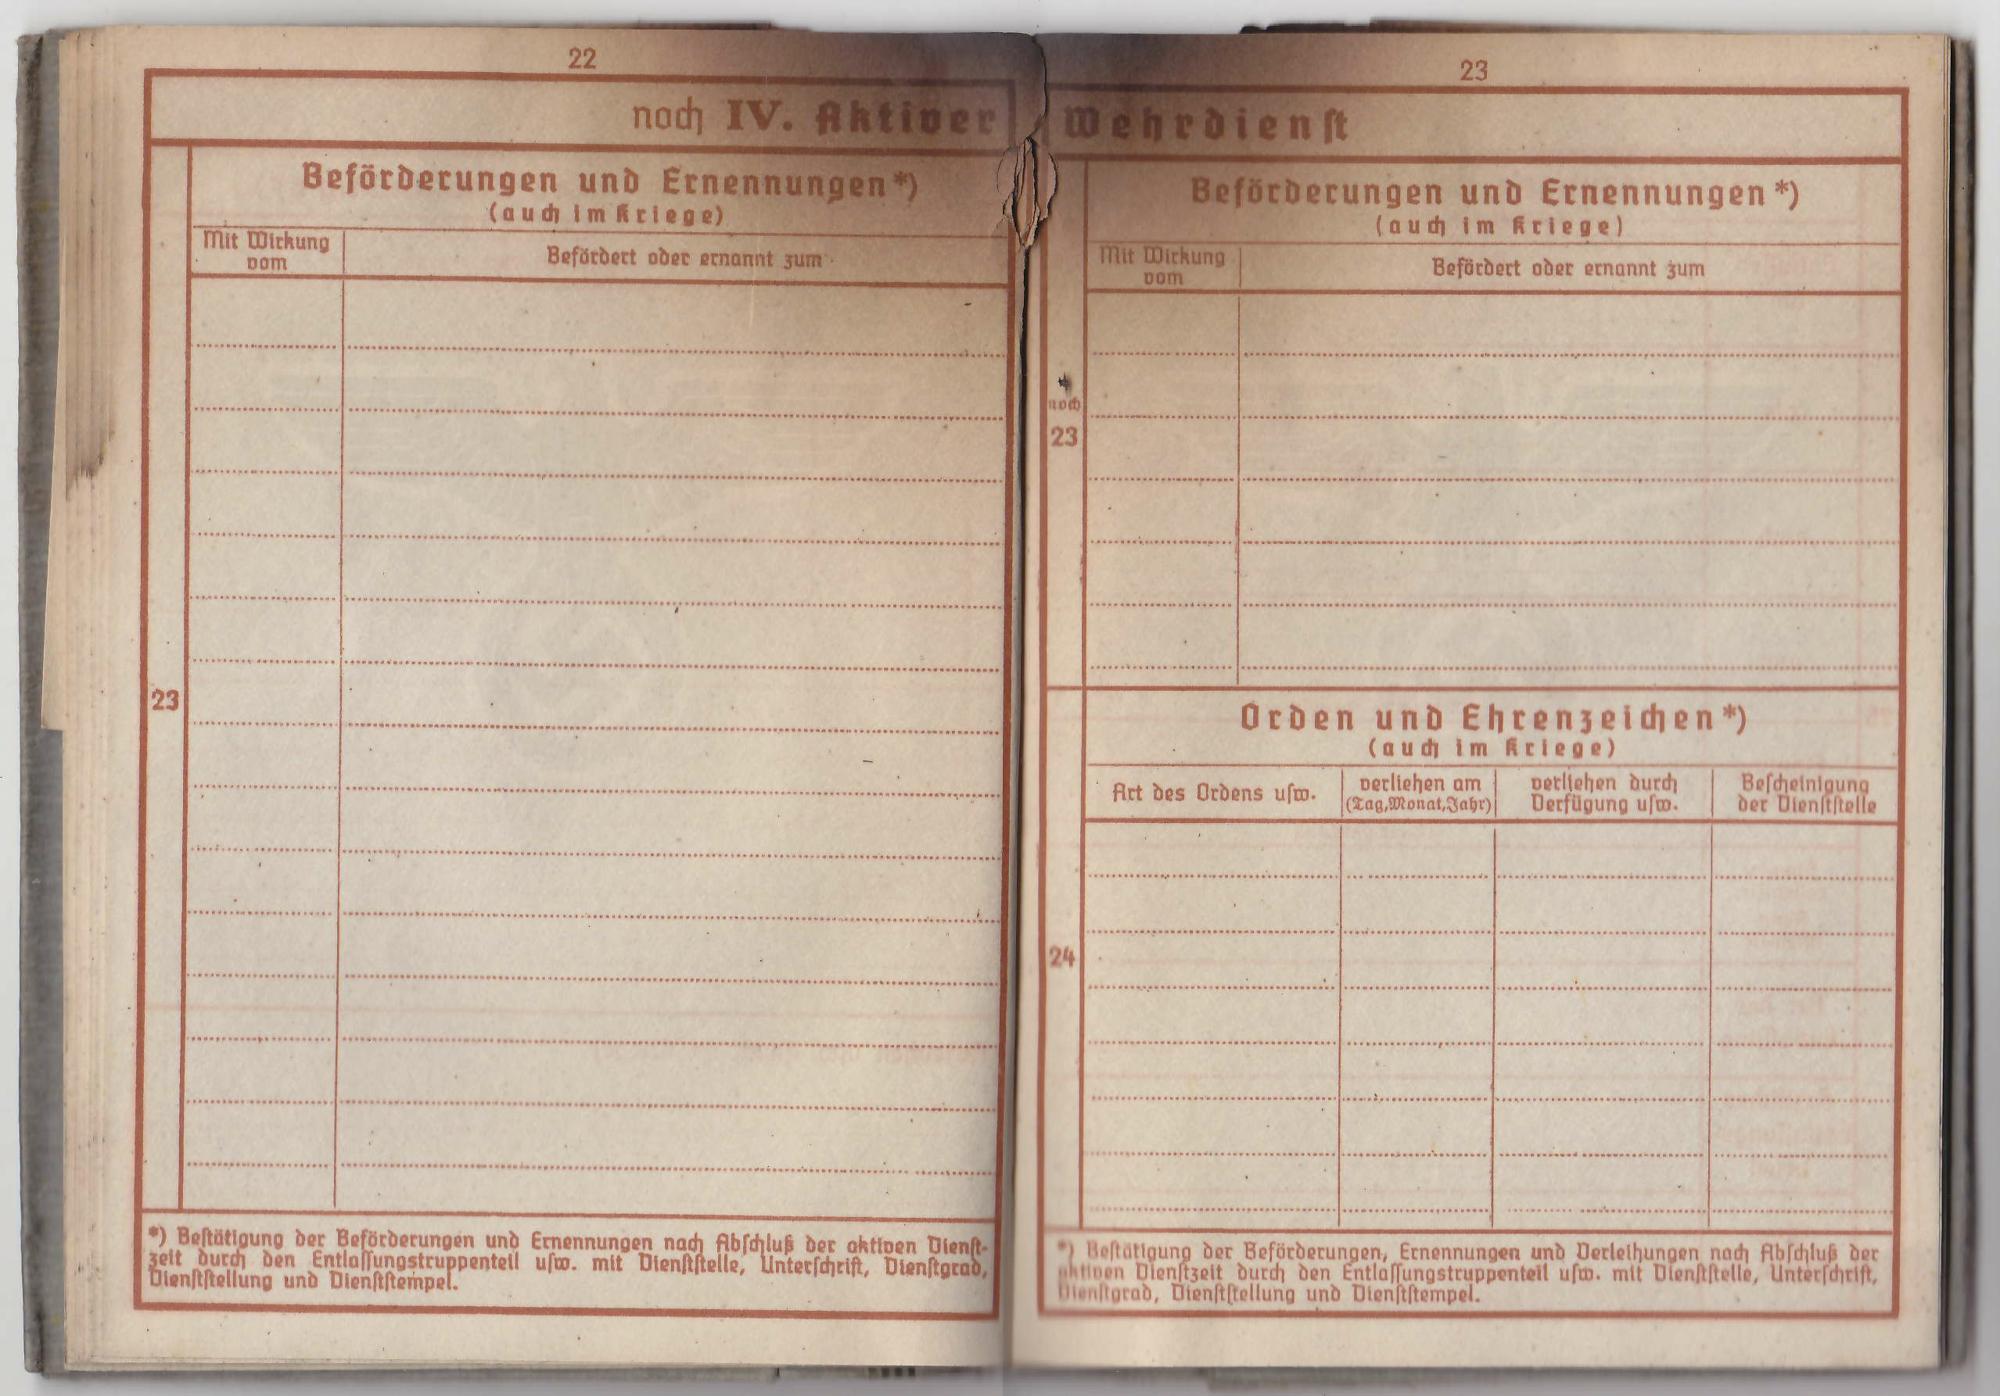 22
noch IV. Aktiver
Beförderungen und Ernennungen*)
(auch im Kriege)
Mit Wirkung
vom
Befördert oder ernannt zum
23
*) Bestätigung der Beförderungen und Ernennungen nach Abschluß der aktiven Dienst-
zeit durch den Entlassungstruppenteil usw. mit Dienststelle, Unterschrift, Dienstgrad,
Dienststellung und Dienststempel.
23
Wehrdienst
Beförderungen und Ernennungen*)
(auch im Kriege)
Mit Wirkung
vom
Befördert oder ernannt zum
noch
23
Orden und Ehrenzeichen*)
(auch im Kriege)
Art des Ordens usw.
verliehen am
(Tag, Monat, Jahr)
verliehen durch
Verfügung usw.
Bescheinigung
der Dienststelle
24
*) Bestätigung der Beförderungen, Ernennungen und Verleihungen nach Abschluß der
aktiven Dienstzeit durch den Entlassungstruppenteil usw. mit Dienststelle, Unterschrift,
Dienstgrad, Dienststellung und Dienststempel.